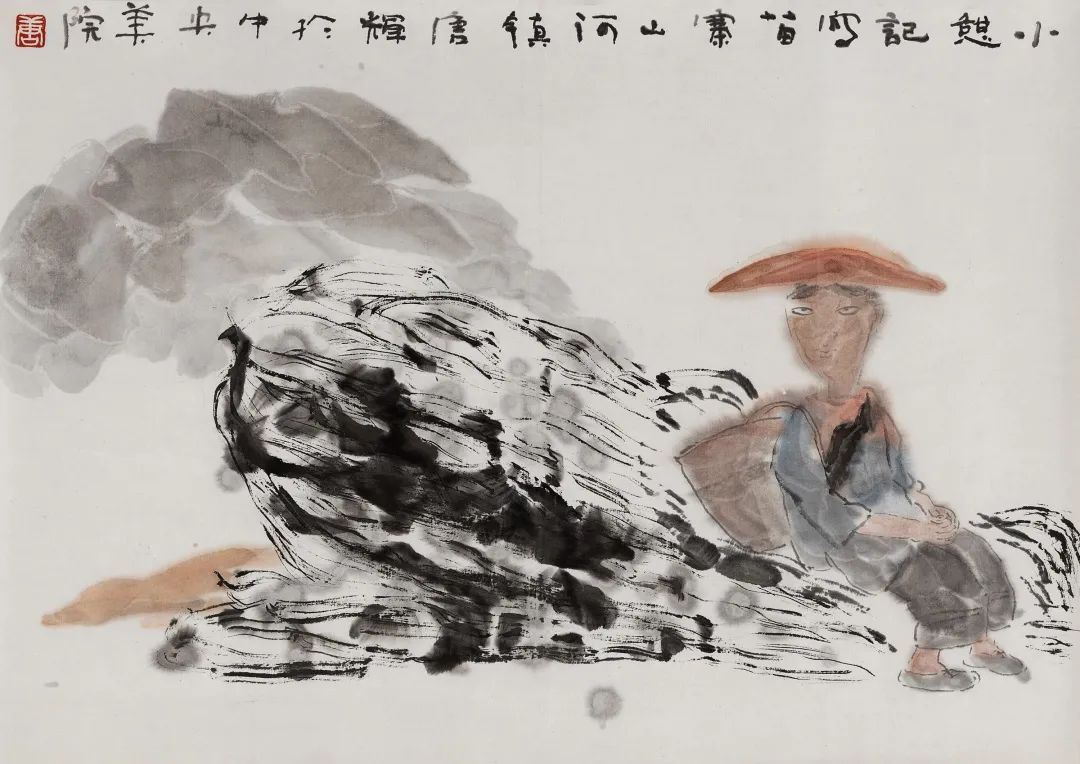 小憩記写苗寨山河镇唐輝於中央美院
唐